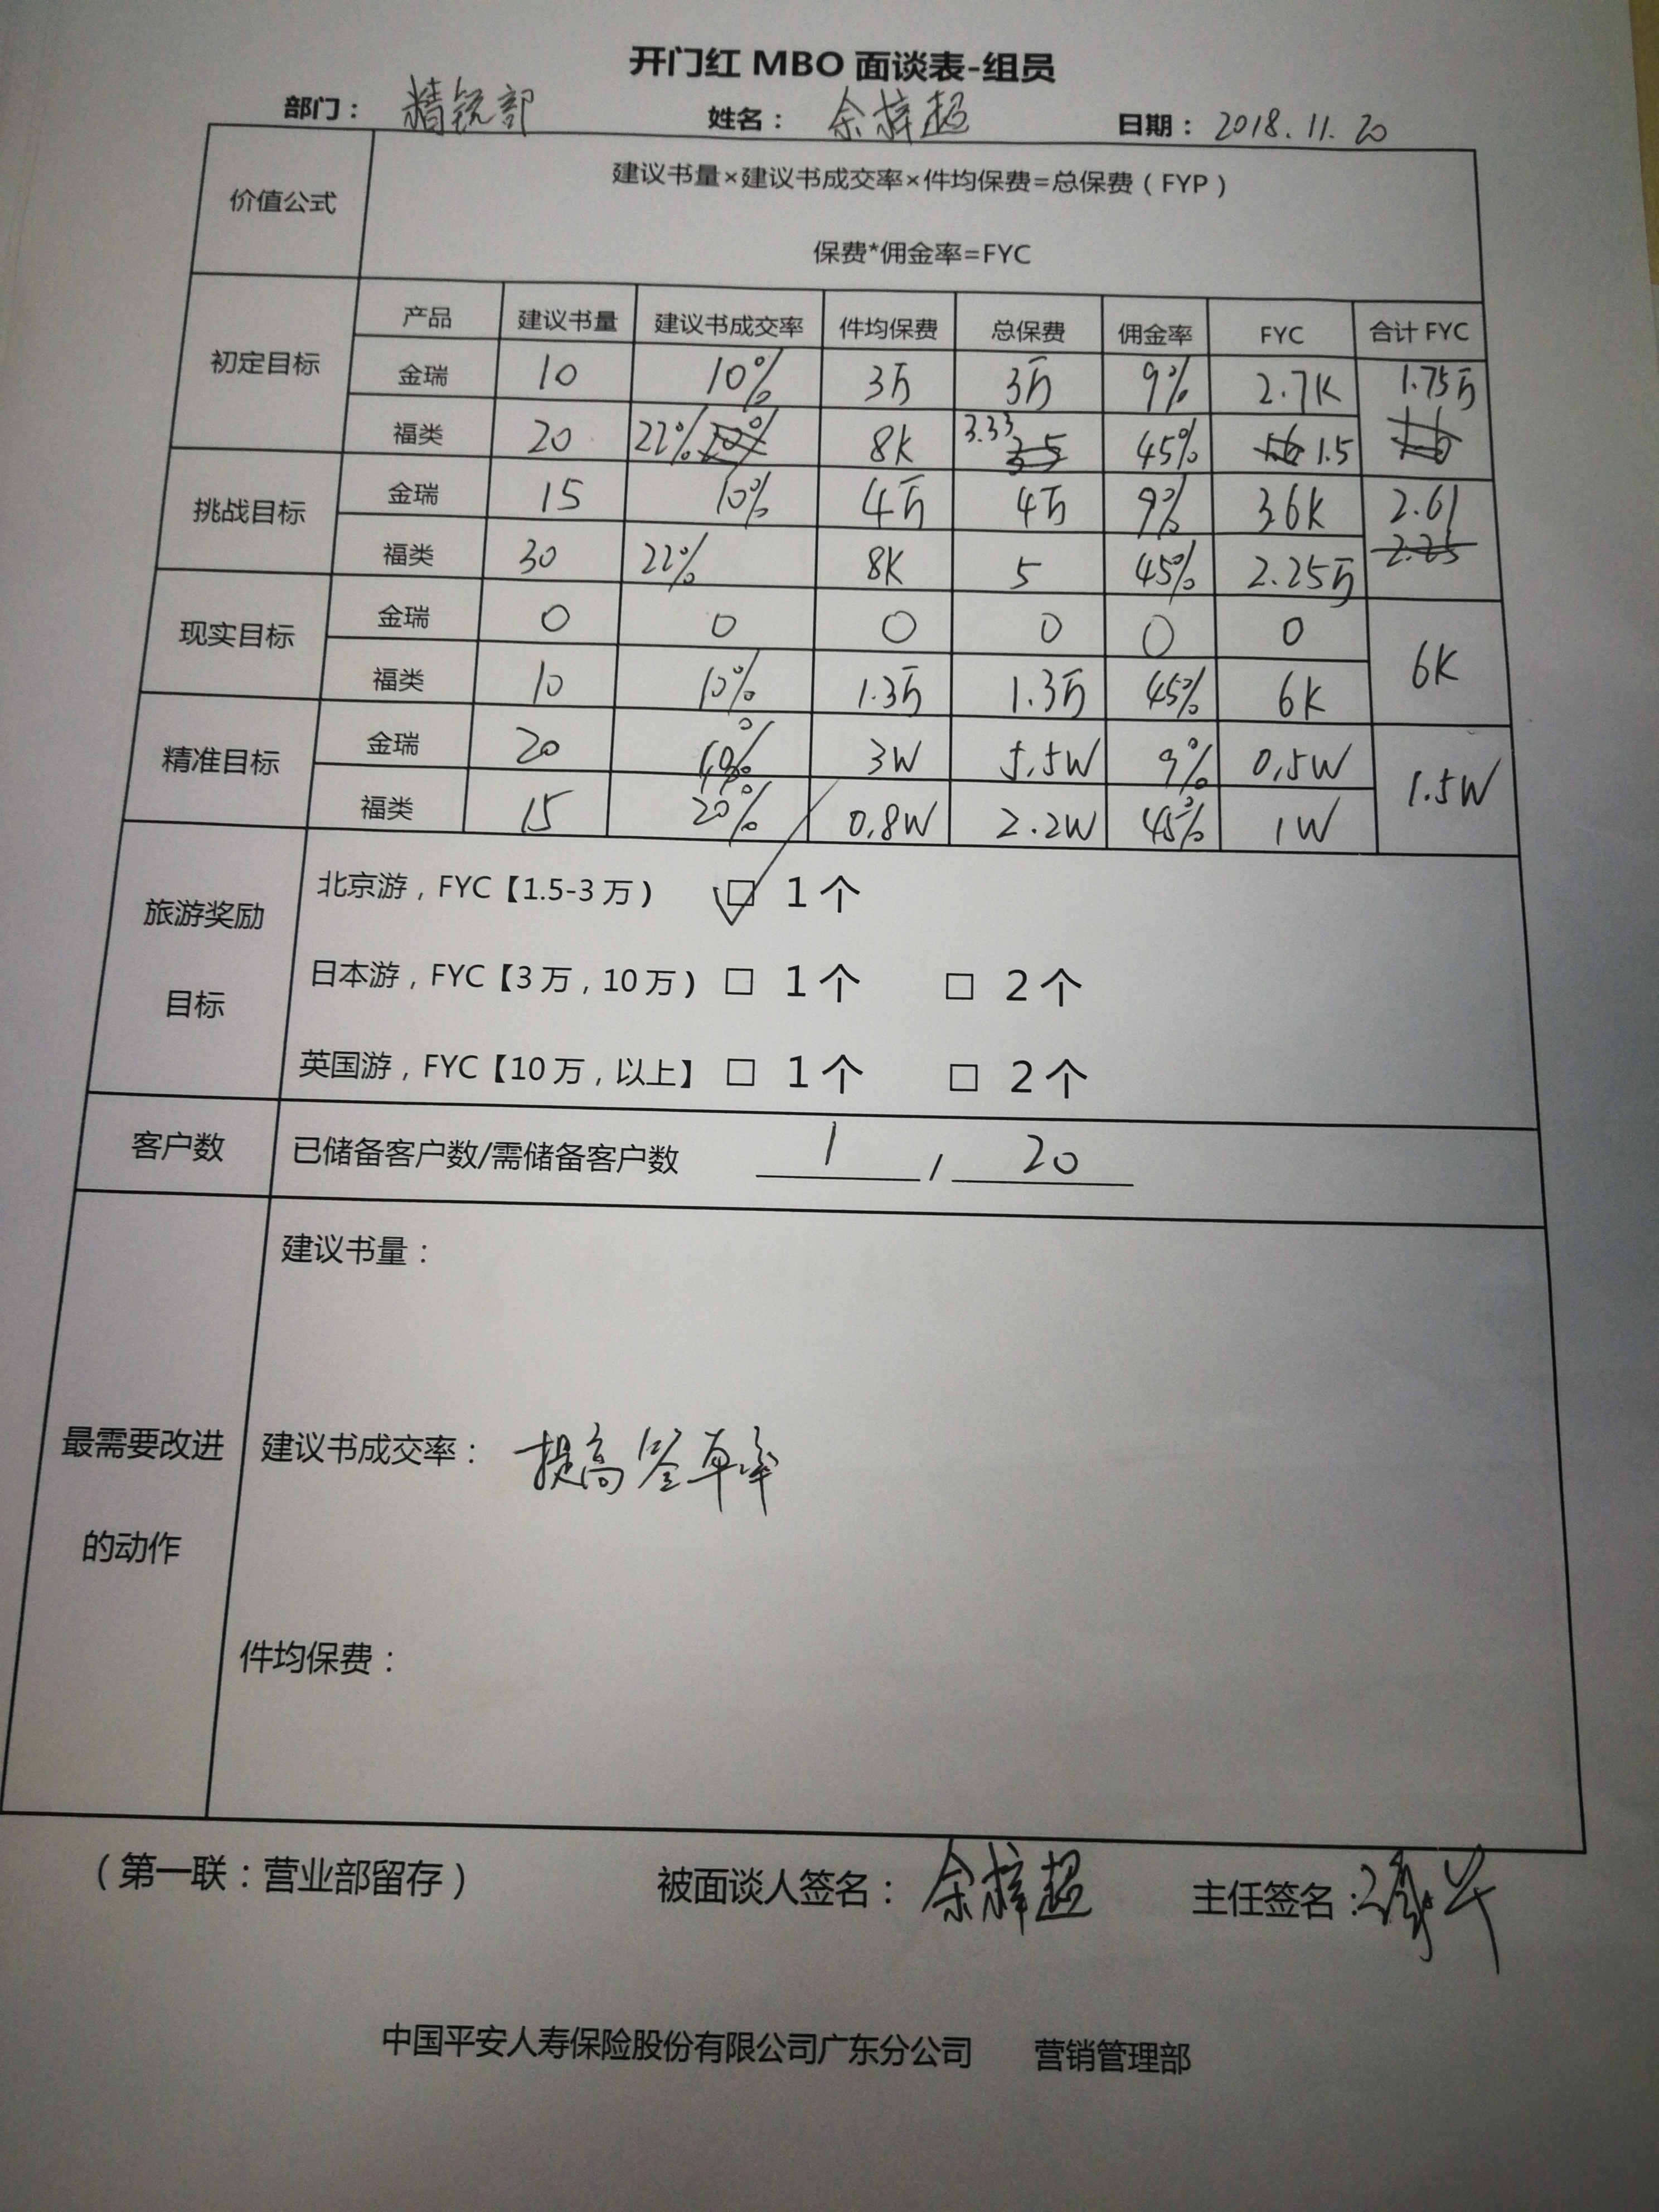 开门红 MBO 面谈表-组员
部门： 精锐部 姓名： 余梓超 日期： 2018.11.20
价值公式 建议书量×建议书成交率×件均保费=总保费（FYP）
保费*佣金率=FYC
产品 建议书量 建议书成交率 件均保费 总保费 佣金率 FYC 合计 FYC
初定目标 金瑞 10 10% 3万 3万 9% 2.7K 1.75万
福类 20 22% 8K 3.33 45% 1.5
挑战目标 金瑞 15 10% 4万 4万 9% 3.6K 2.61
福类 30 22% 8K 5 45% 2.25万 2.25
现实目标 金瑞 0 0 0 0 0 0 6K
福类 10 10% 1.3万 1.3万 45% 6K
精准目标 金瑞 20 10% 3W 5.5W 9% 0.5W 1.5W
福类 15 20% 0.8W 2.2W 45% 1W
旅游奖励目标 北京游，FYC【1.5-3 万） ☑ 1 个
日本游，FYC【3 万，10 万） □ 1 个 □ 2 个
英国游，FYC【10 万，以上】 □ 1 个 □ 2 个
客户数 已储备客户数/需储备客户数 1 / 20
最需要改进的动作 建议书量：
建议书成交率： 提高签单率
件均保费：
（第一联：营业部留存） 被面谈人签名： 余梓超 主任签名：
中国平安人寿保险股份有限公司广东分公司 营销管理部